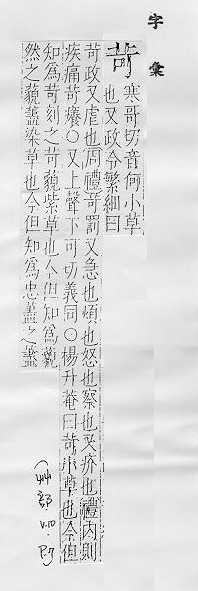 字彙
苛
寒哥切音何小草
也又政令繁細曰
苛政又虐也周禮苛罰又急也煩也怒也察也又疥也禮内則
疾痛苛癢○又上聲下可切義同○楊升菴曰苛小草也今但
知為苛刻之苛藐紫草也今但知為藐
然之藐藎染草也今但知為忠藎之藎
(艸部 V.10. P.7)